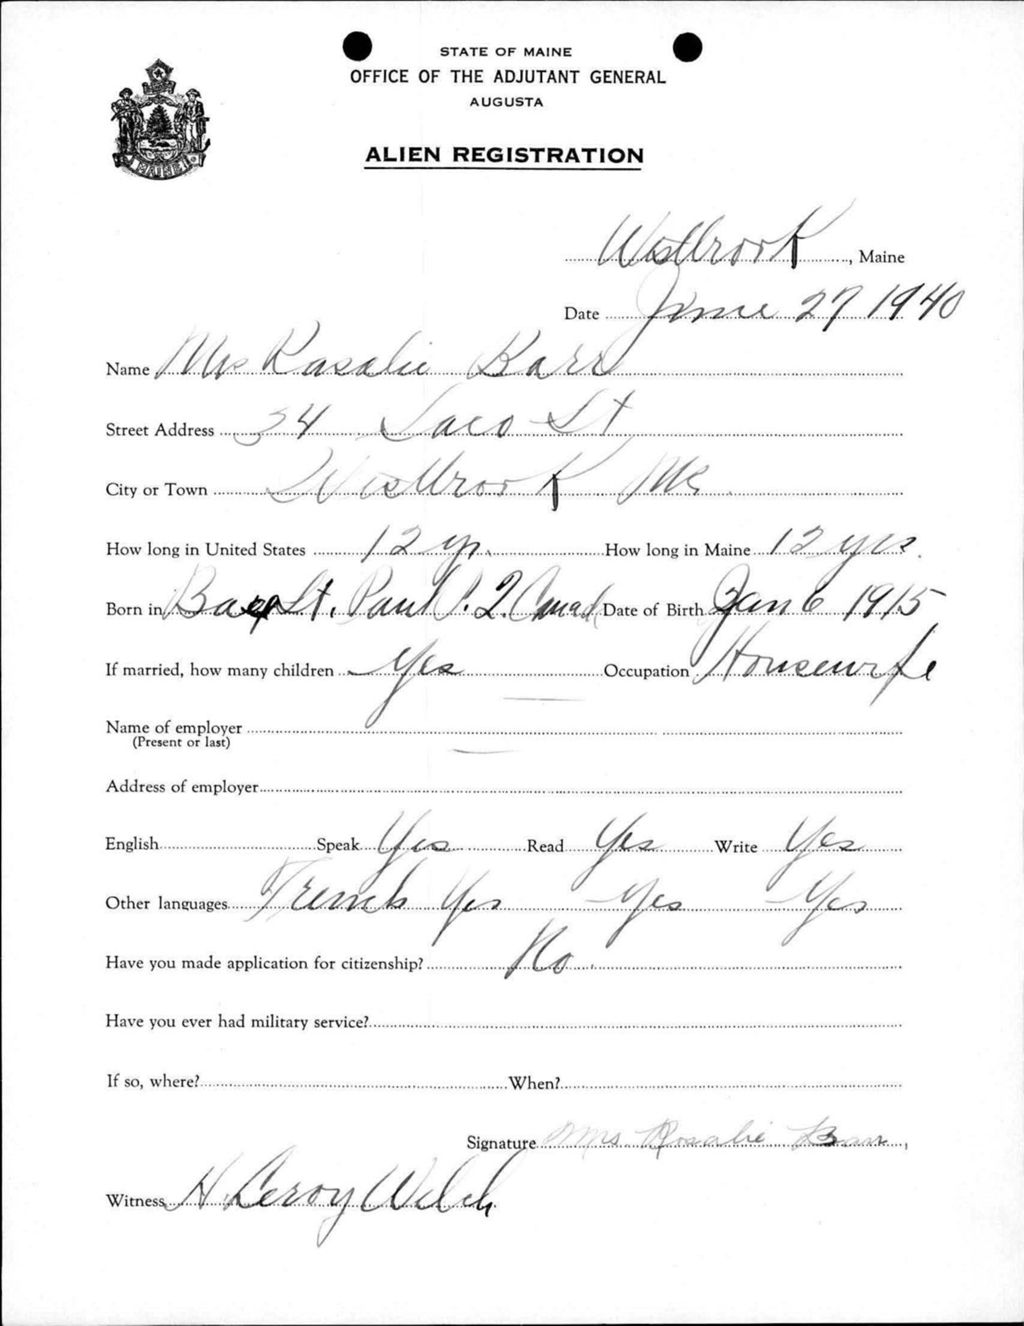 STATE OF MAINE
OFFICE OF THE ADJUTANT GENERAL
AUGUSTA
ALIEN REGISTRATION
Westbrook, Maine
Date June 27 1940
Name Mrs Rosalie Barr
Street Address 34 Saco St
City or Town Westbrook Me.
How long in United States 12 yr. How long in Maine 12 yrs.
Born in St. Paul P. Q. Canad Date of Birth Jan 6 1915
If married, how many children Yes Occupation Housewife
Name of employer
(Present or last)
Address of employer
English Speak Yes Read Yes Write Yes
Other languages French Yes Yes Yes
Have you made application for citizenship? No.
Have you ever had military service?
If so, where? When?
Signature Mrs Rosalie Barr
Witness H. Leroy Welch
MAINE